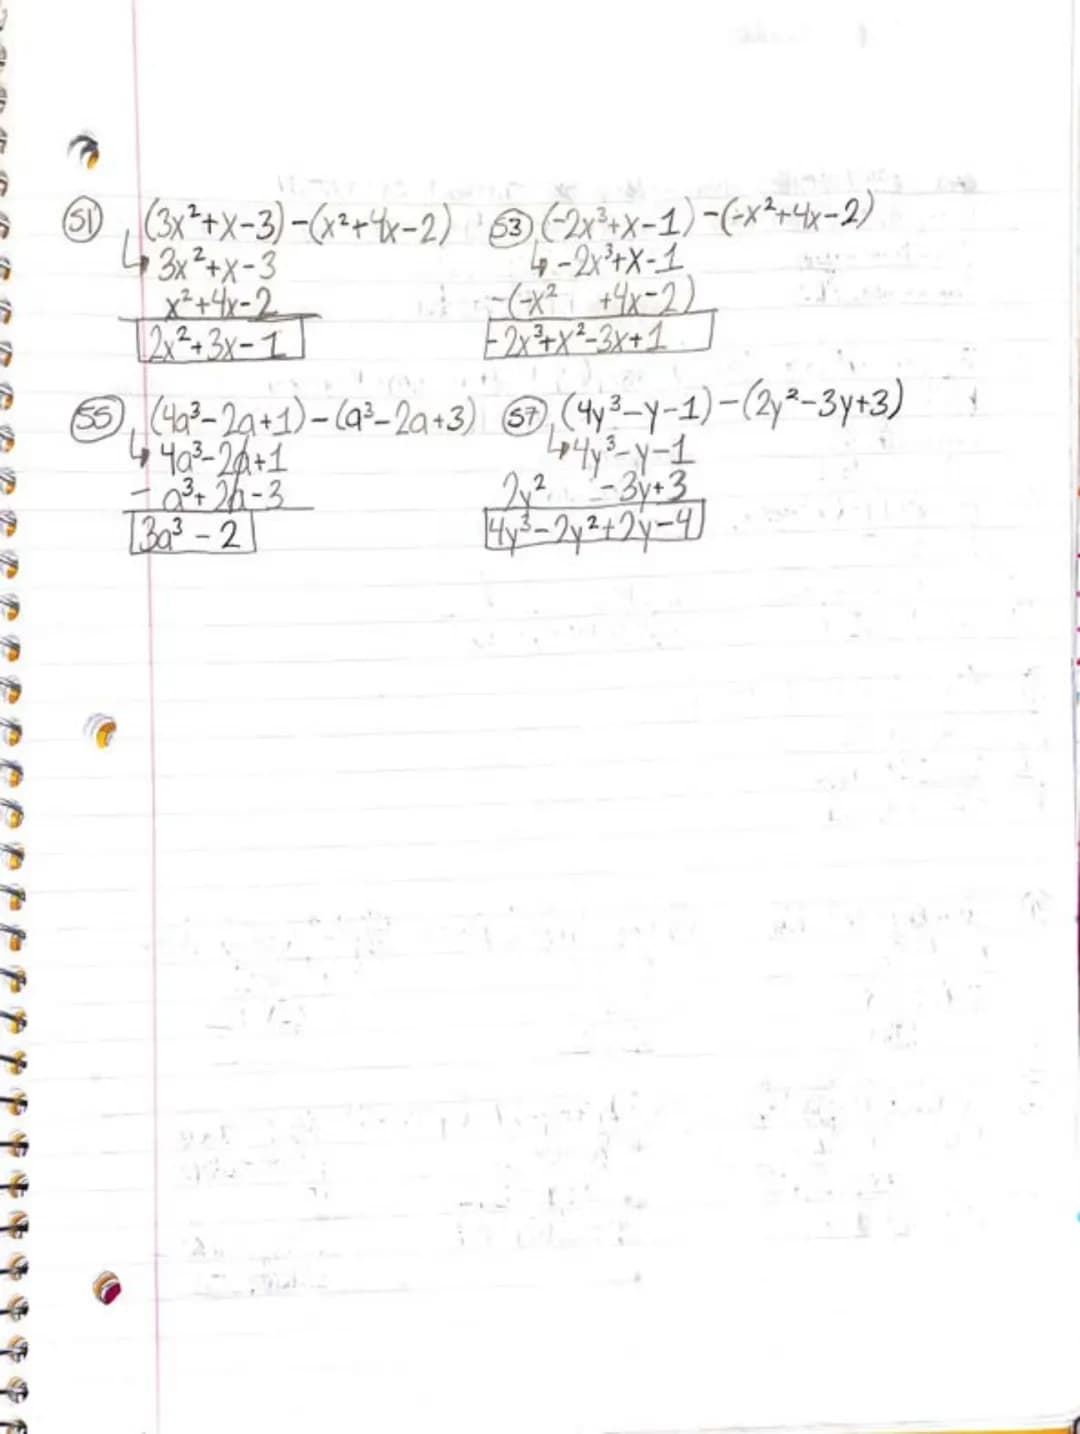 51 (3x²+x-3)-(x²+4x-2)
↳ 3x²+x-3
x²+4x-2
2x²+3x-1
53 (-2x³+x-1)-(-x²+4x-2)
↳ -2x³+x-1
-(-x² +4x-2)
-2x³+x²-3x+1
55 (4a³-2a+1)-(a³-2a+3)
↳ 4a³-2a+1
- a³+2a-3
3a³ - 2
57 (4y³-y-1)-(2y²-3y+3)
↳ 4y³-y-1
2y² -3y+3
4y³-2y²+2y-4